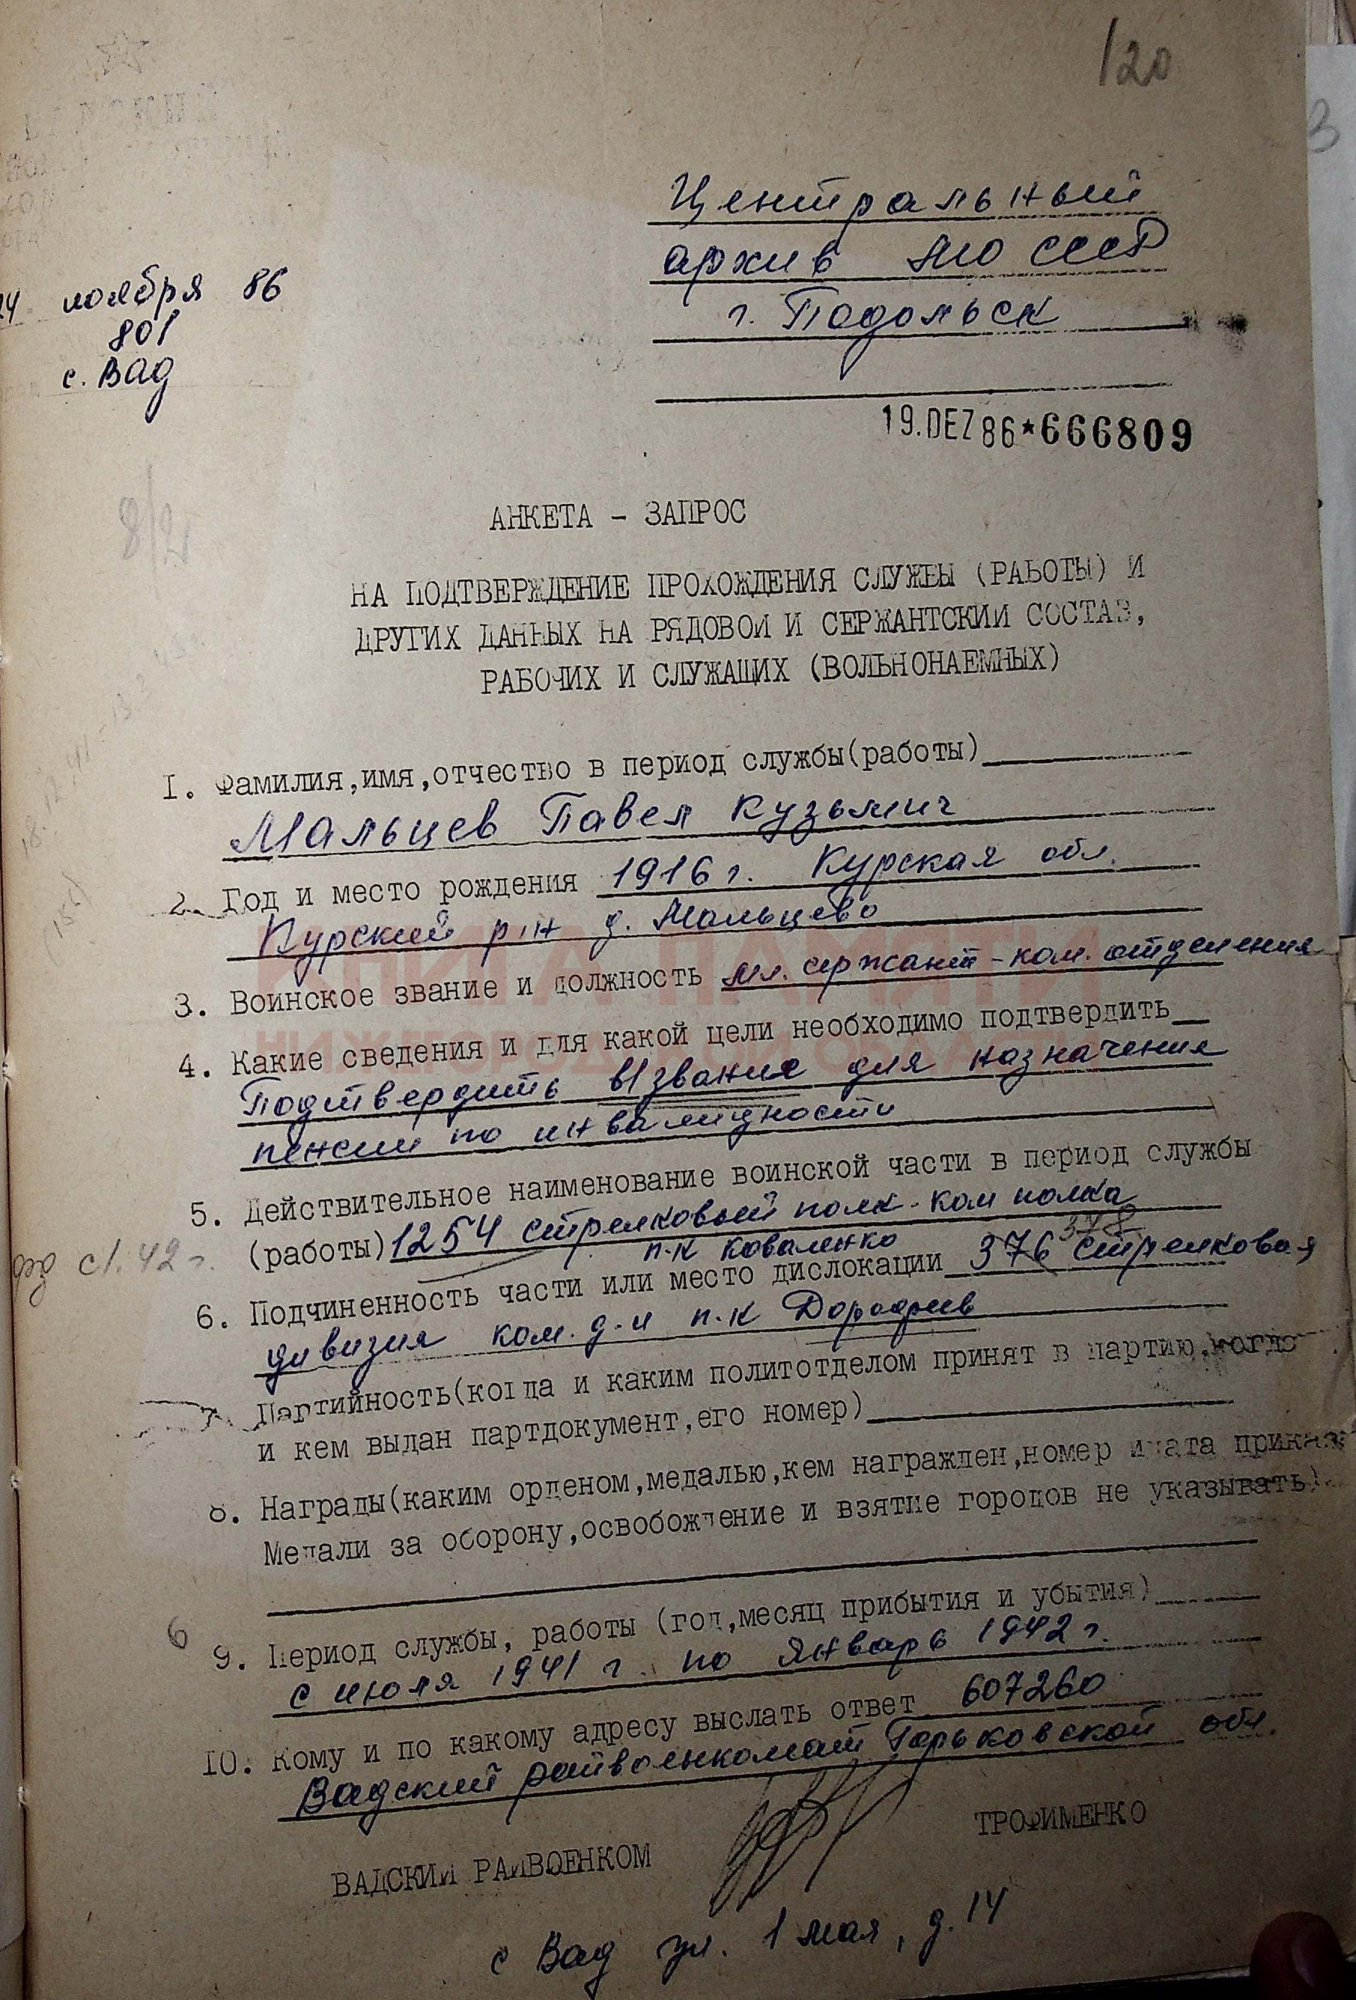 120
3
Центральный
архив МО СССР
г. Подольск
24 ноября 86
801
с. Вад
19.DEZ 86*666809
8/2
АНКЕТА - ЗАПРОС
НА ПОДТВЕРЖДЕНИЕ ПРОХОЖДЕНИЯ СЛУЖБЫ (РАБОТЫ) И
ДРУГИХ ДАННЫХ НА РЯДОВОЙ И СЕРЖАНТСКИЙ СОСТАВ,
РАБОЧИХ И СЛУЖАЩИХ (ВОЛЬНОНАЕМНЫХ)
I. Фамилия,имя,отчество в период службы(работы)
Мальцев Павел Кузьмич
2. Год и место рождения 1916 г. Курская обл.
Курский р-н д. Мальцево
КНИГА ПАМЯТИ
3. Воинское звание и должность мл. сержант - ком. отделения
НИЖЕГОРОДСКОЙ ОБЛАСТИ
4. Какие сведения и для какой цели необходимо подтвердить
Подтвердить в/звание для назначения
пенсии по инвалидности
5. Действительное наименование воинской части в период службы
(работы) 1254 стрелковый полк - ком полка
п-к Коваленко
378
6. Подчиненность части или место дислокации 376 стрелковая
дивизия ком. д-и п-к Дорофеев
с 1.42 г.
7. Партийность(когда и каким политотделом принят в партию,когда
и кем выдан партдокумент,его номер)
8. Награды(каким орденом,медалью,кем награжден,номер и дата приказа
Медали за оборону,освобождение и взятие городов не указывать)
6
9. Период службы, работы (год,месяц прибытия и убытия)
с июля 1941 г. по январь 1942 г.
10. Кому и по какому адресу выслать ответ 607260
Вадский райвоенкомат Горьковской обл.
ВАДСКИЙ РАЙВОЕНКОМ ТРОФИМЕНКО
с Вад ул. 1 мая, д. 14